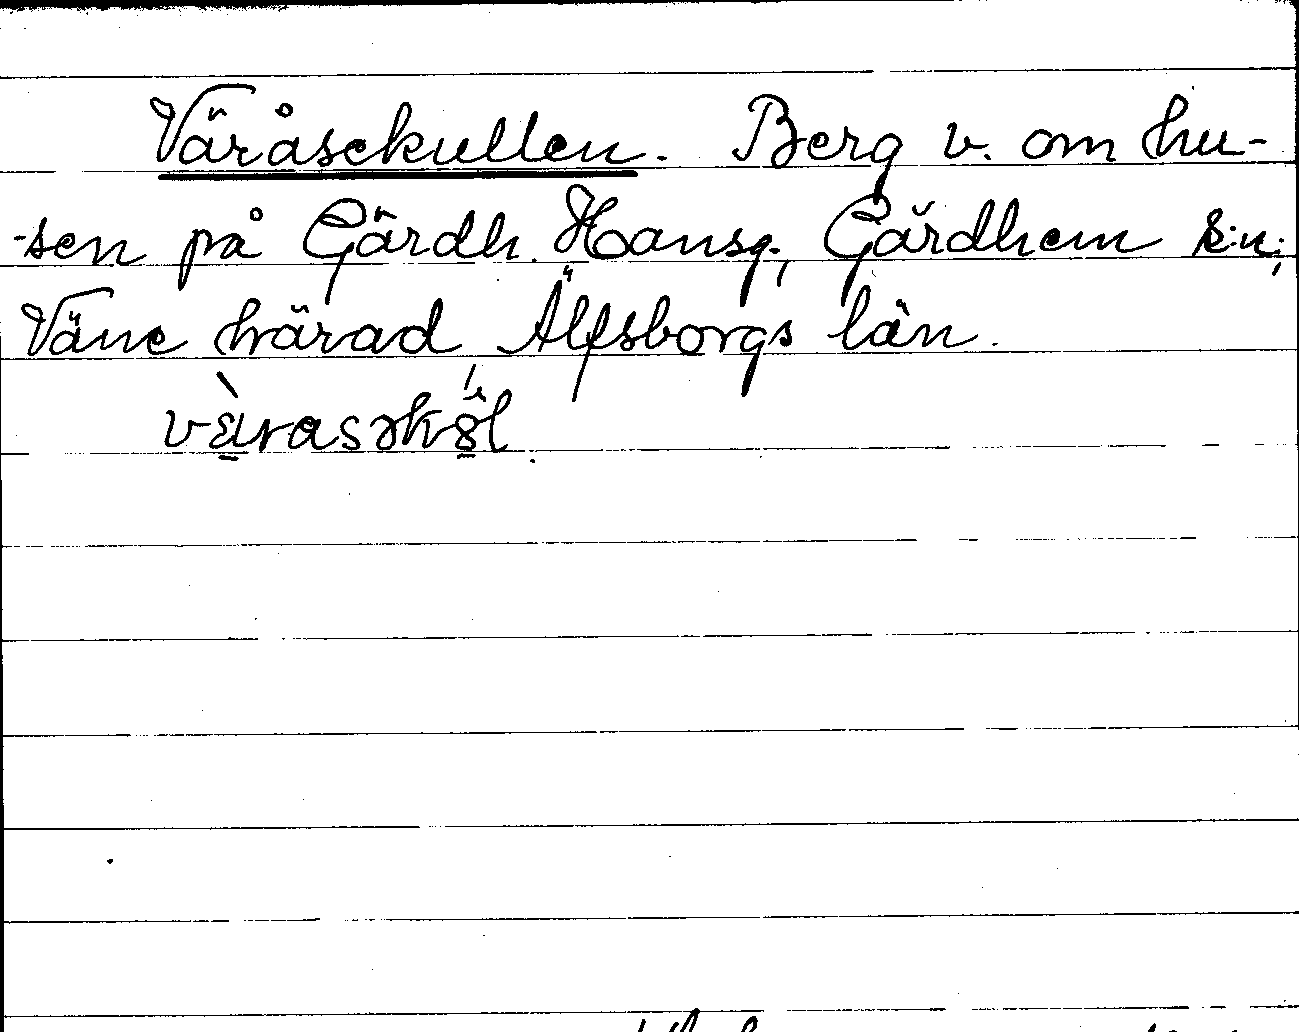 Väråsekullen. Berg v. om hu-
-sen på Gärdh. Hansg., Gärdhem s:n;
Väne härad Älfsborgs län.